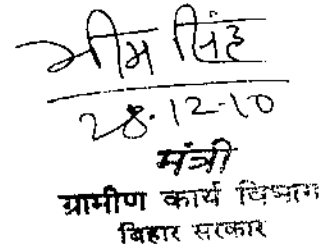 भीम सिंह
28.12.10
मंत्री
ग्रामीण कार्य विभाग
बिहार सरकार